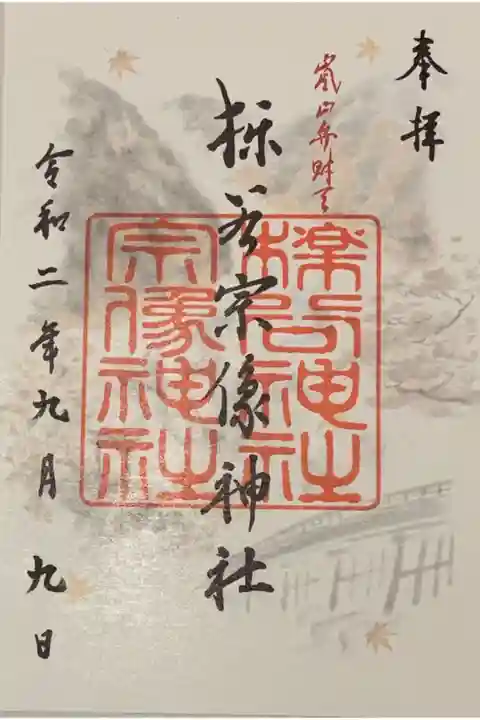 奉拝
嵐山弁財天
櫟谷宗像神社
櫟谷神社
宗像神社
令和二年九月九日